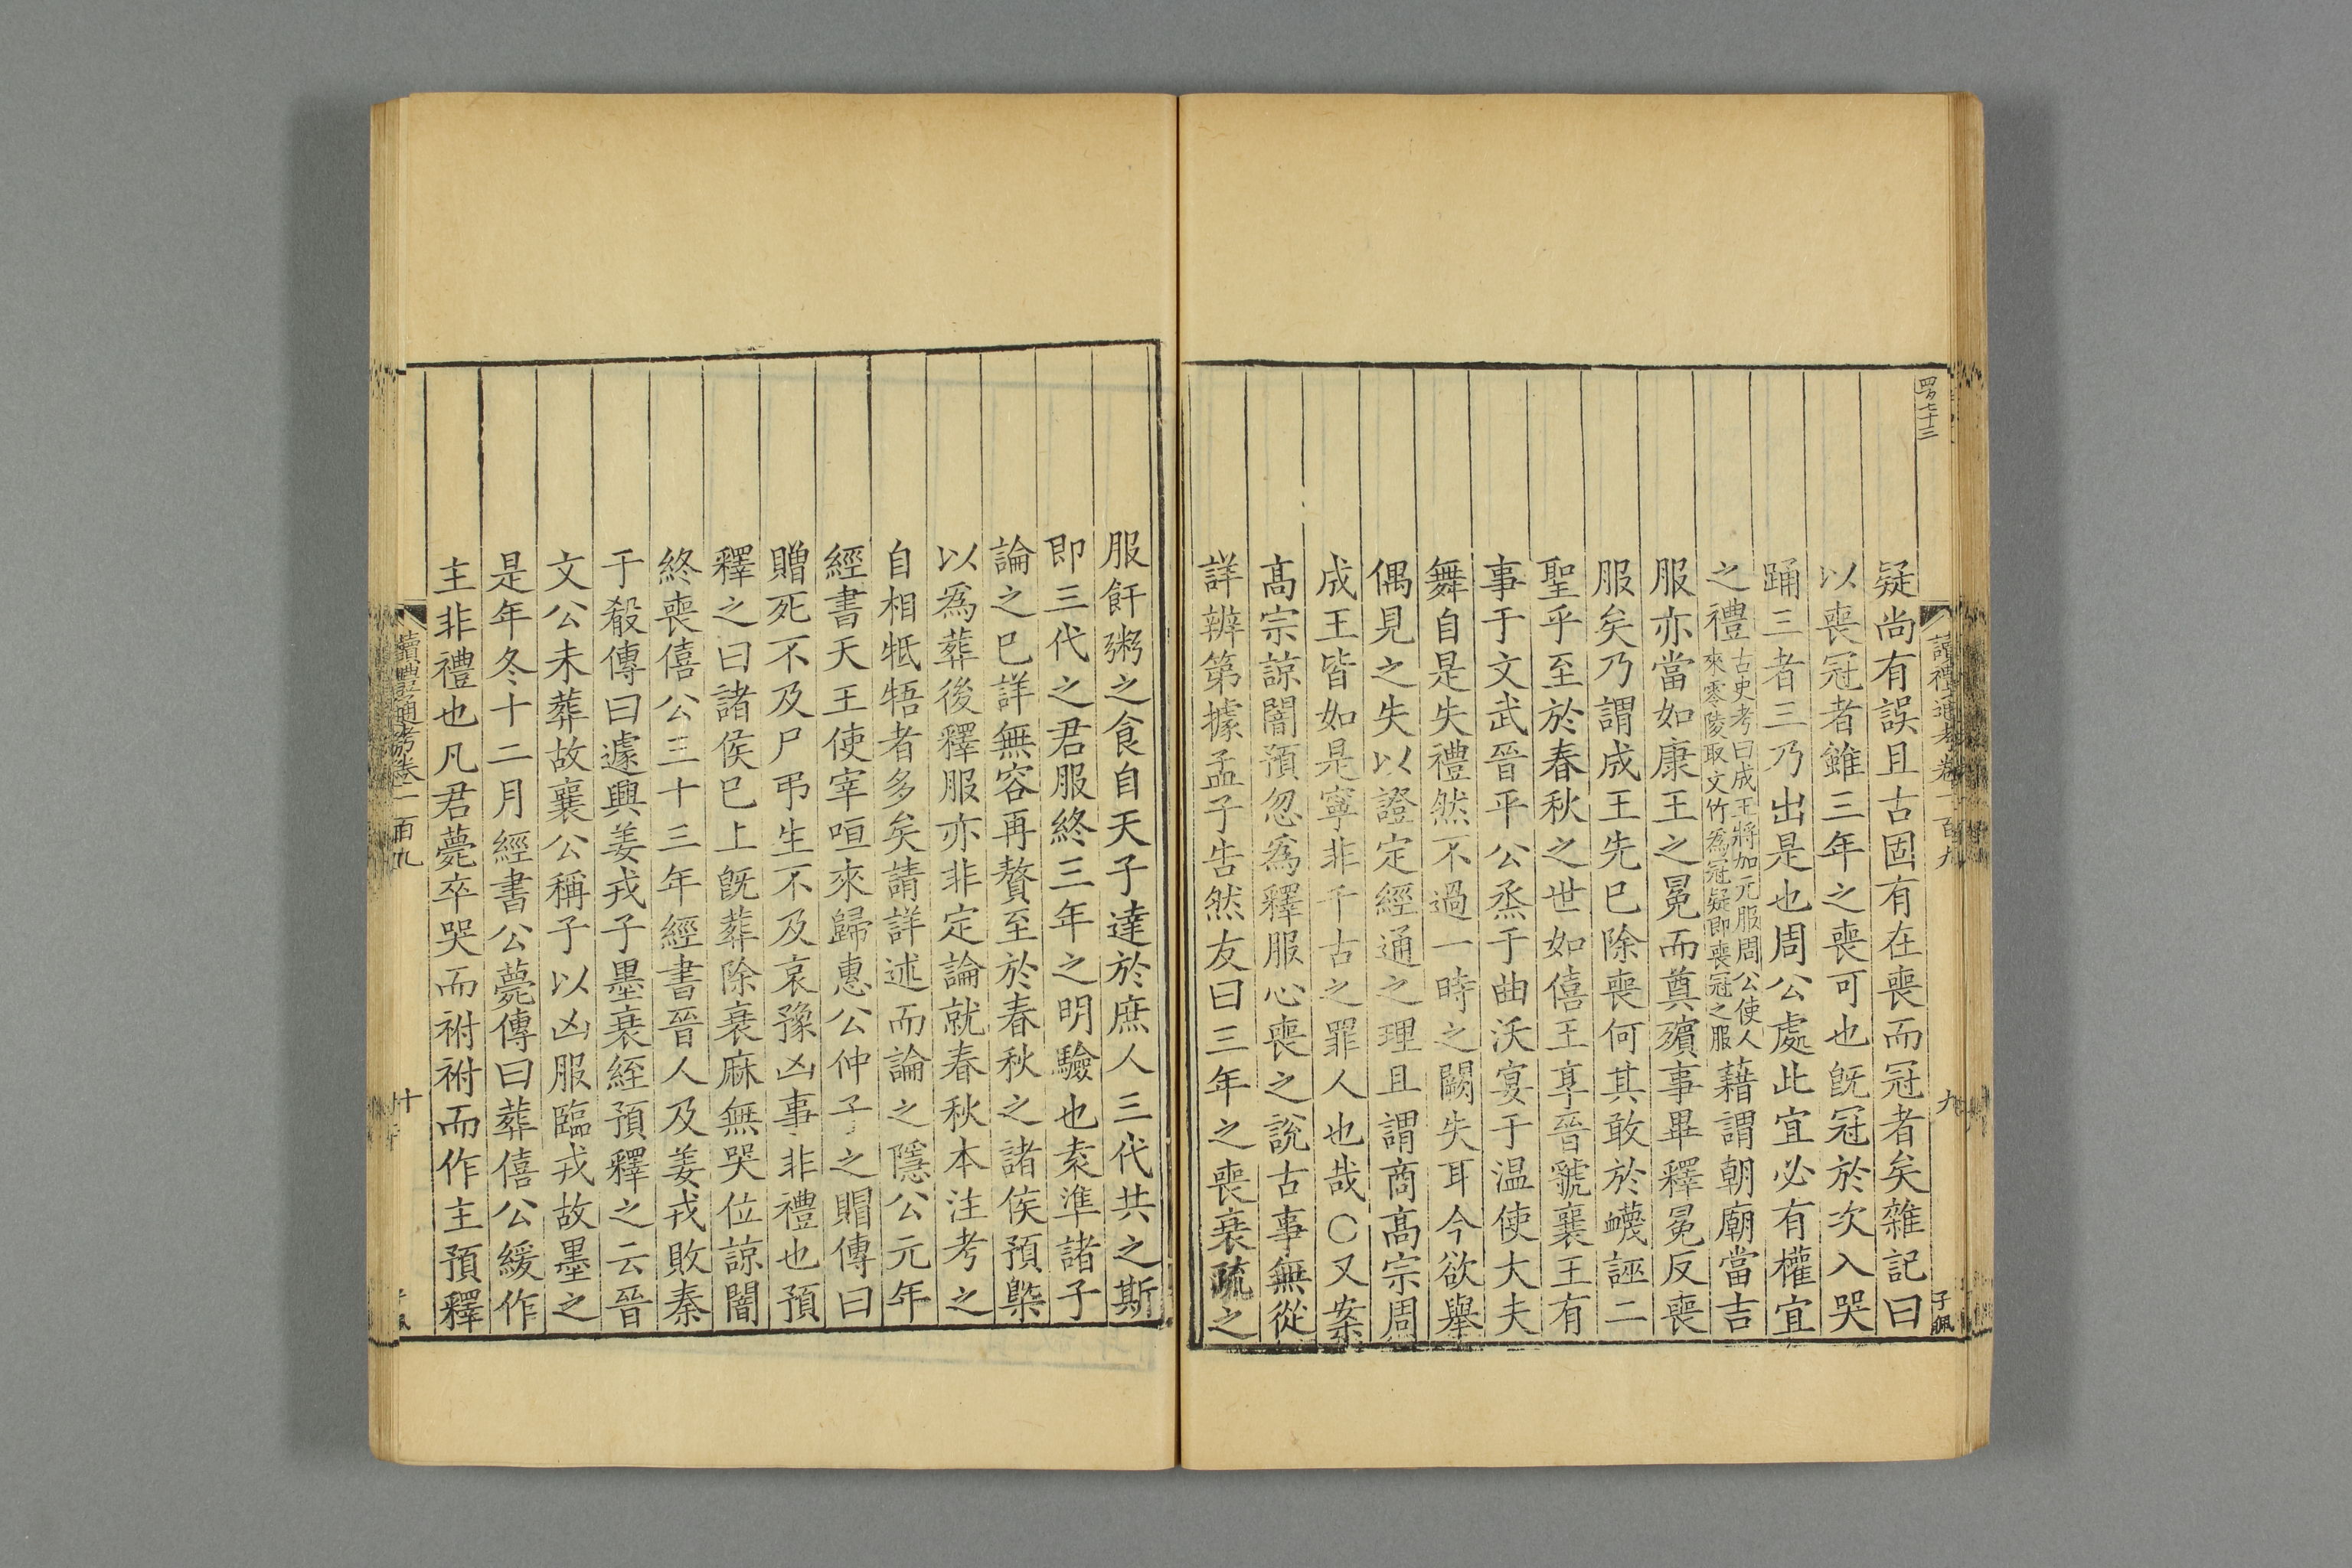 四百七十三
讀禮通考卷一百九
九
子佩
疑尚有誤且古固有在喪而冠者矣雜記曰
以喪冠者雖三年之喪可也旣冠於次入哭
踊三者三乃出是也周公處此宜必有權宜
之禮古史考曰成王將加元服周公使人來零陵取文竹為冠疑即喪冠之服藉謂朝廟當吉
服亦當如康王之冕而奠殯事畢釋冕反喪
服矣乃謂成王先巳除喪何其敢於衊誣二
聖乎至於春秋之世如僖王享晉虢襄王有
事于文武晉平公烝于曲沃宴于温使大夫
舞自是失禮然不過一時之闕失耳今欲舉
偶見之失以證定經通之理且謂商髙宗周
成王皆如是寧非千古之罪人也哉〇又案
髙宗諒闇預忽爲釋服心喪之說古事無從
詳辨第據孟子告然友曰三年之喪衰疏之
服飦粥之食自天子達於庶人三代共之斯
即三代之君服終三年之明驗也素準諸子
論之巳詳無容再贅至於春秋之諸侯預槩
以爲葬後釋服亦非定論就春秋本注考之
自相牴牾者多矣請詳述而論之隱公元年
經書天王使宰咺來歸惠公仲子之賵傳曰
贈死不及尸弔生不及哀豫凶事非禮也預
釋之曰諸侯巳上旣葬除衰麻無哭位諒闇
終喪僖公三十三年經書晉人及姜戎敗秦
于殽傳曰遽興姜戎子墨衰絰預釋之云晉
文公未葬故襄公稱子以凶服臨戎故墨之
是年冬十二月經書公薨傳曰葬僖公緩作
主非禮也凡君薨卒哭而祔祔而作主預釋
讀禮通考卷一百九
十